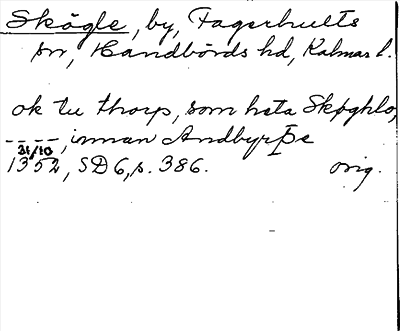 Skögle, by, Fagerhults
sn, Handbörds hd, Kalmar l.
ok tu thorp, som heta Skøghlo,
----, innan Andbyrþe
31/10
1352, SD 6, s. 386. orig.